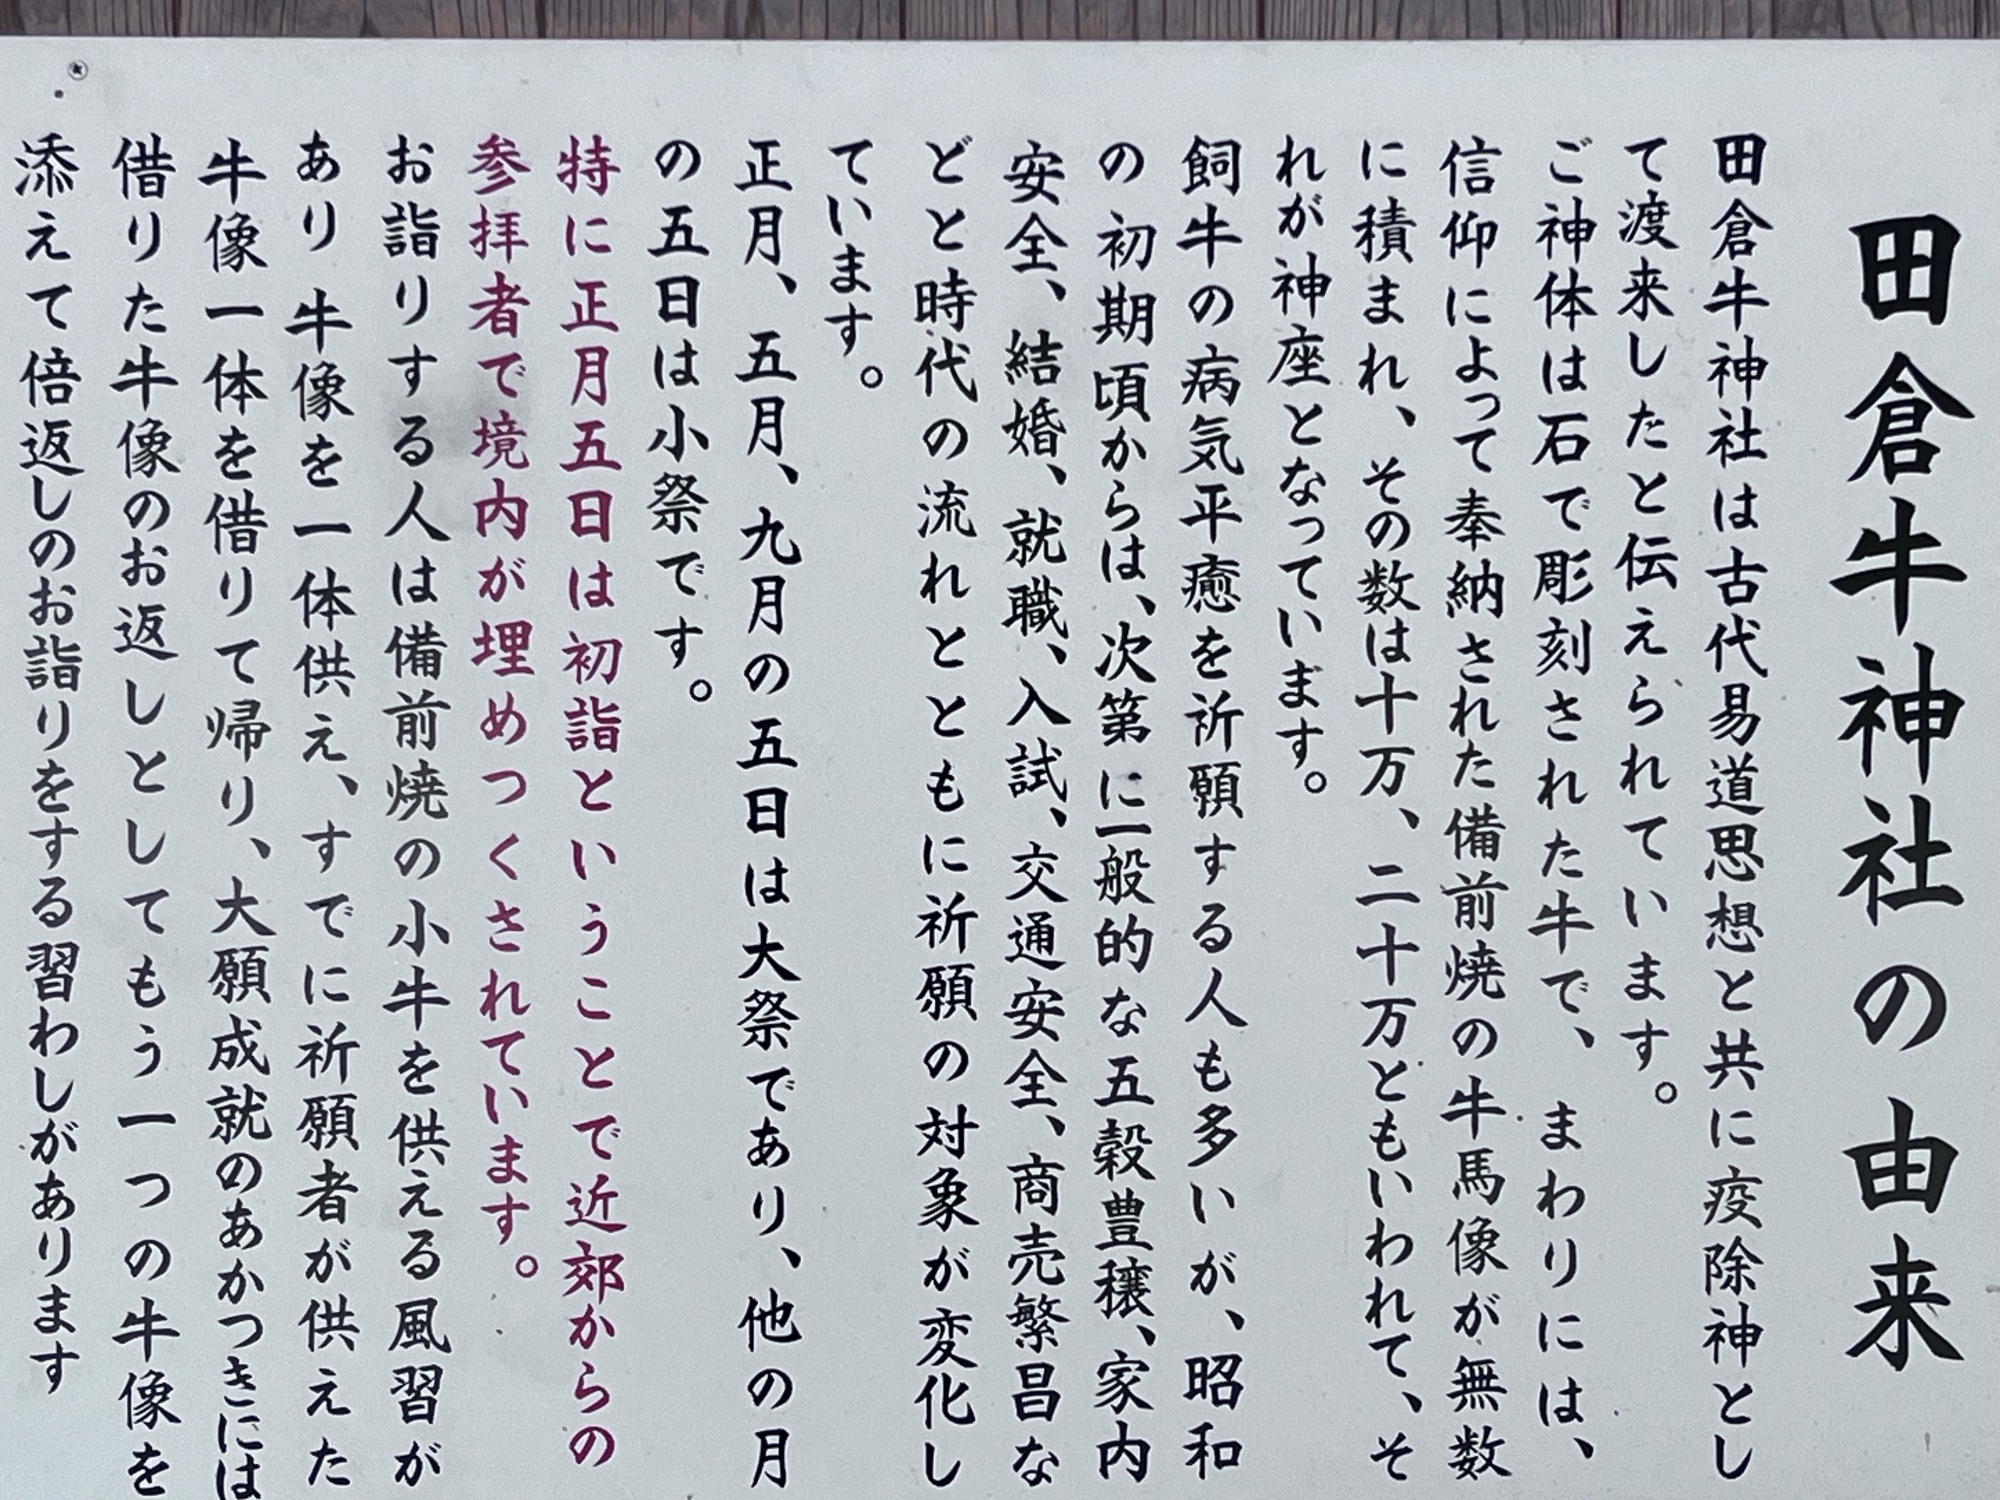 田倉牛神社の由来
田倉牛神社は古代易道思想と共に疫除神とし
て渡来したと伝えられています。
ご神体は石で彫刻された牛で、まわりには、
信仰によって奉納された備前焼の牛馬像が無数
に積まれ、その数は十万、二十万ともいわれて、そ
れが神座となっています。
飼牛の病気平癒を祈願する人も多いが、昭和
の初期頃からは、次第に一般的な五穀豊穣、家内
安全、結婚、就職、入試、交通安全、商売繁昌な
どと時代の流れとともに祈願の対象が変化し
ています。
正月、五月、九月の五日は大祭であり、他の月
の五日は小祭です。
特に正月五日は初詣ということで近郊からの
参拝者で境内が埋めつくされています。
お詣りする人は備前焼の小牛を供える風習が
あり 牛像を一体供え、すでに祈願者が供えた
牛像一体を借りて帰り、大願成就のあかつきには
借りた牛像のお返しとしてもう一つの牛像を
添えて倍返しのお詣りをする習わしがあります